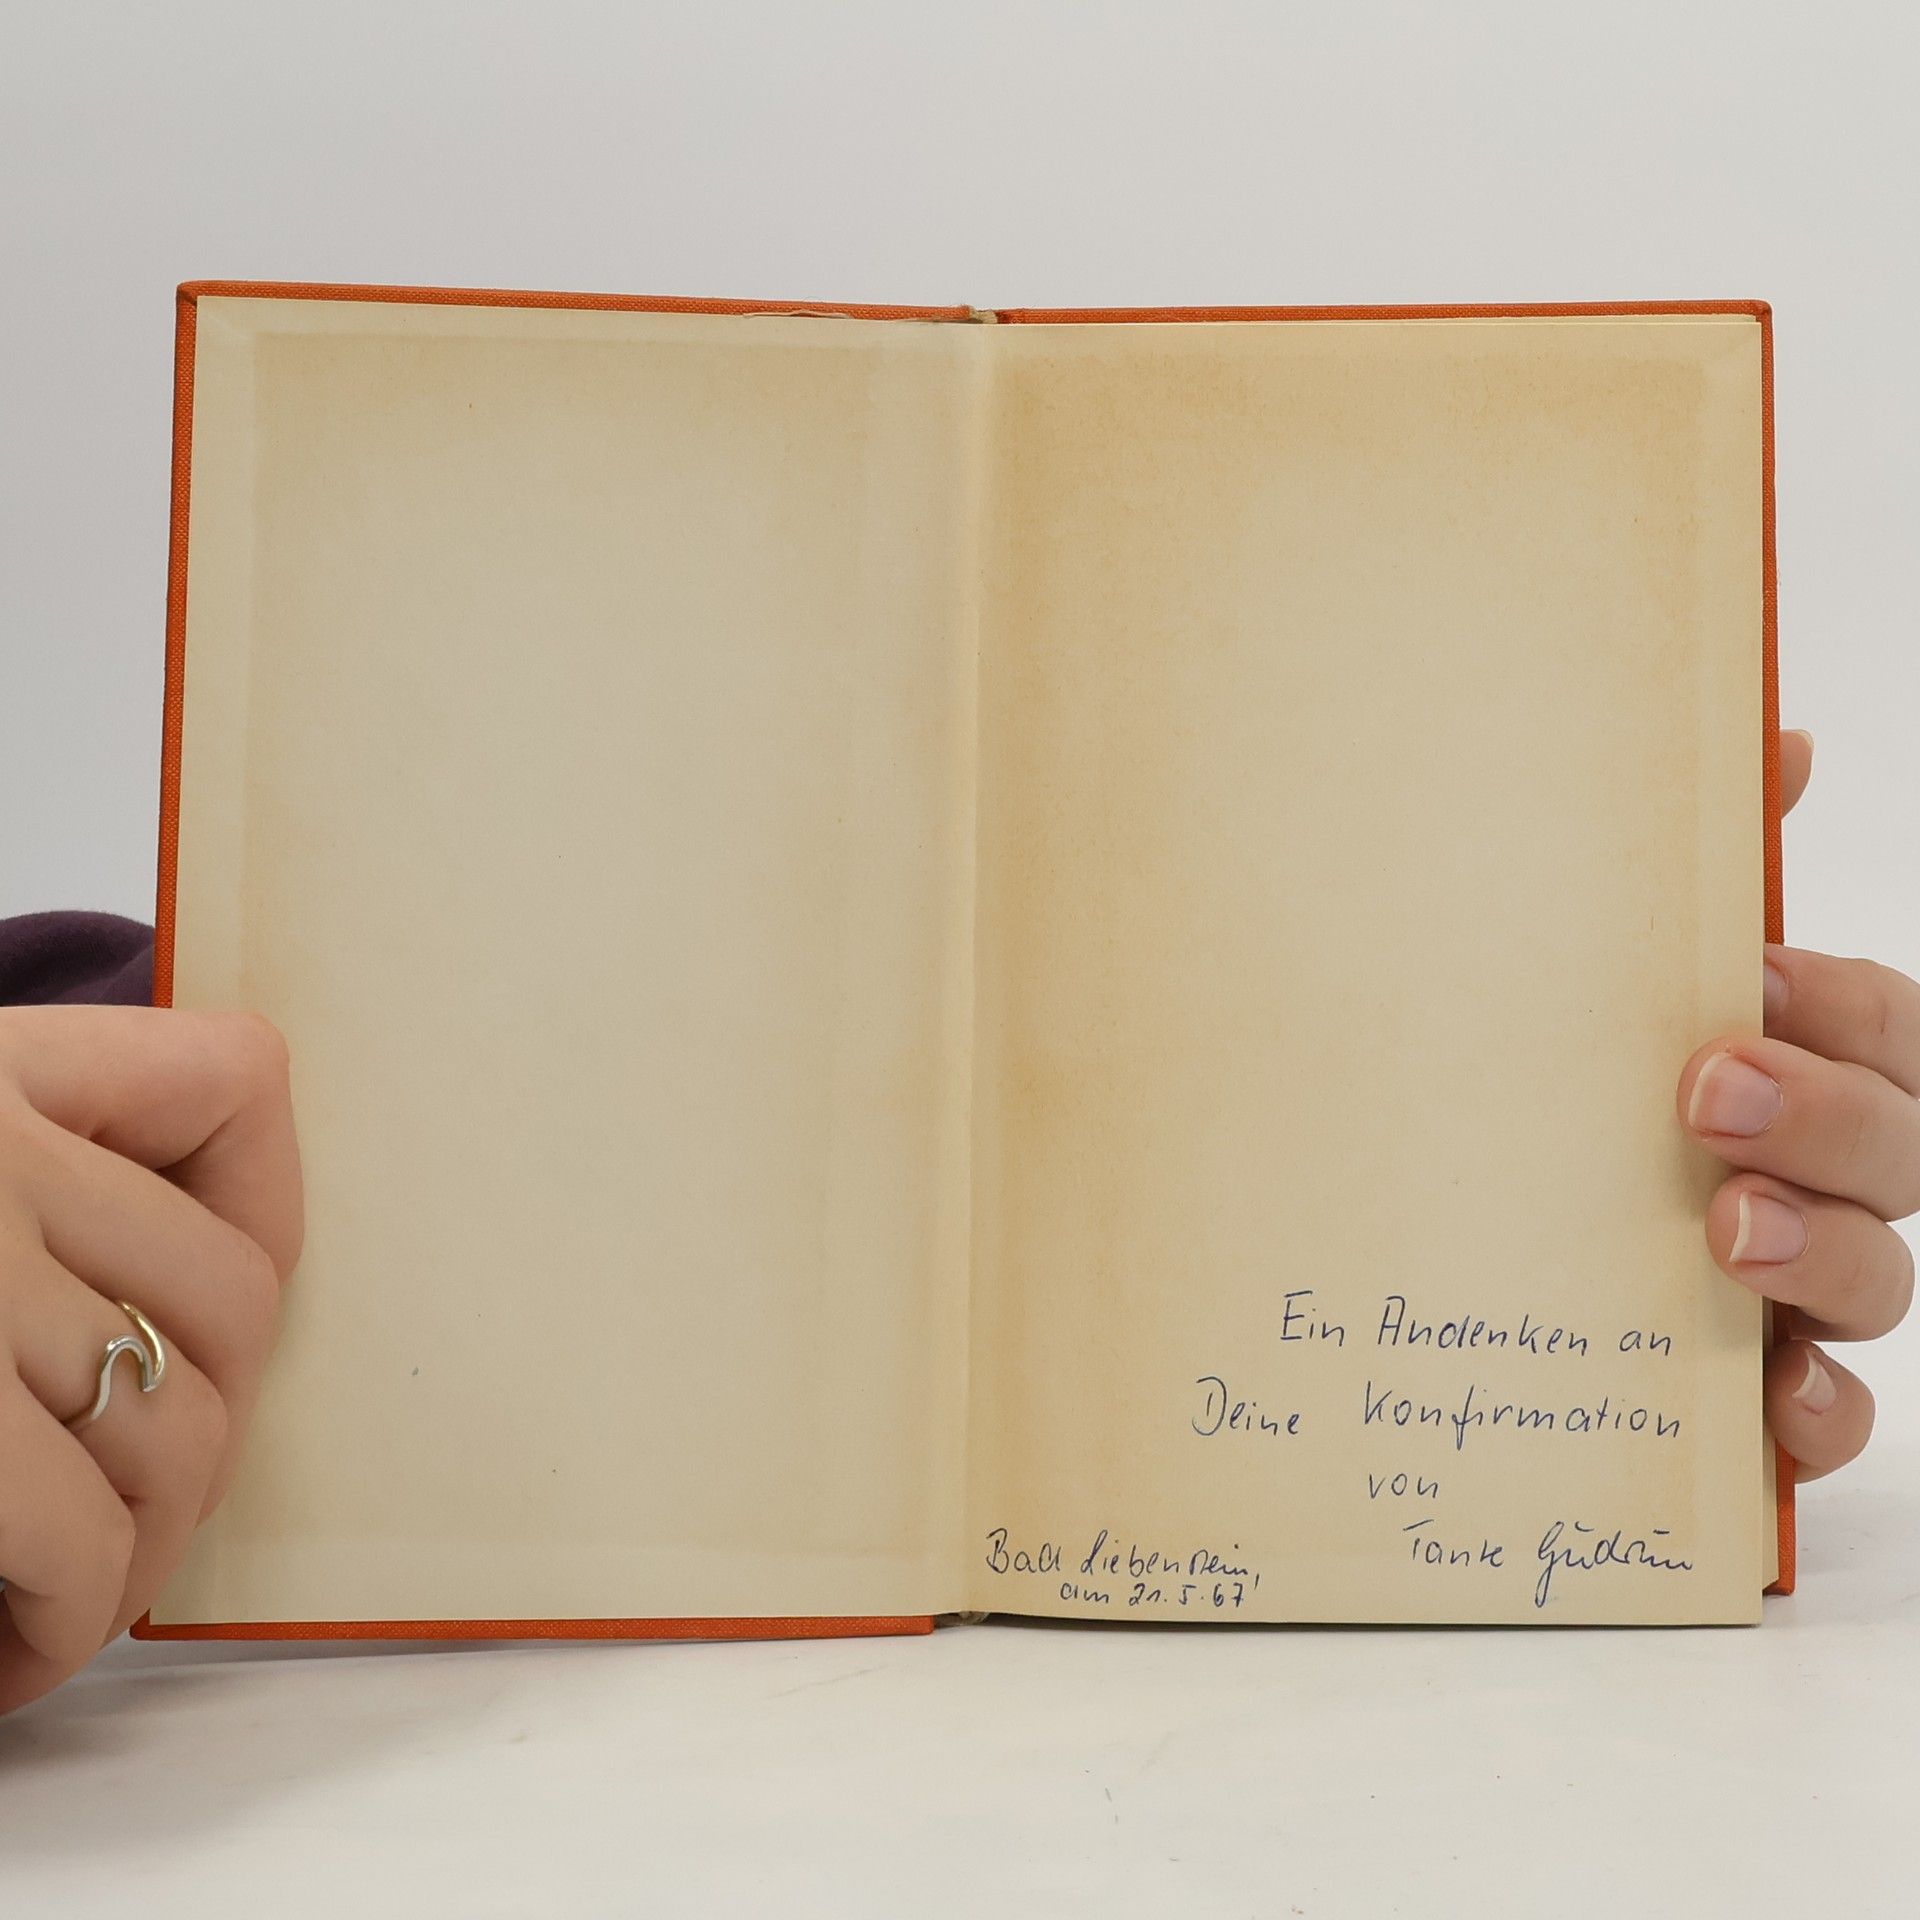 Ein Andenken an
Deine Konfirmation
von
Tante Gudrun
Bad Liebenstein,
am 21.5.67